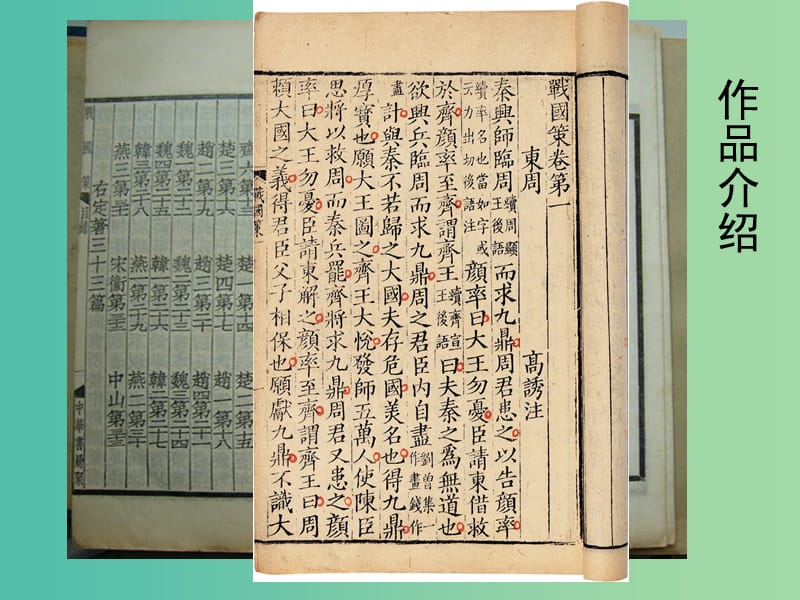 作品介绍
戰國策卷第一
東周 高誘注
秦興師臨周續周顯王後語而求九鼎周君患之以告顔率
續率名也當如字或云力出切後語注顔率曰大王勿憂臣請東借救
於齊顔率至齊謂齊王續齊宣王後語曰夫秦之爲無道也
欲興兵臨周而求九鼎周之君臣内自盡劉曽集一作畫錢作
畫計與秦不若歸之大國夫存危國美名也得九鼎
厚寶也願大王圖之齊王大悅發師五萬人使陳臣
思將以救周而秦兵罷齊將求九鼎周君又患之顔
率曰大王勿憂臣請東解之顔率至齊謂齊王曰周
賴大國之義得君臣父子相保也願獻九鼎不識大
戰國策一
齊六第十三 楚一第十四 楚二第十五
楚三第十六 楚四第十七 趙一第十八
趙二第十九 趙三第二十 趙四第二十一
魏一第二十二 魏二第二十三 魏三第二十四
魏四第二十五 韓一第二十六 韓二第二十七
韓三第二十八 燕一第二十九 燕二第三十
燕三第三十一 宋衛第三十二 中山第三十三
右定著三十三篇
戰國策 目錄 中華書局聚